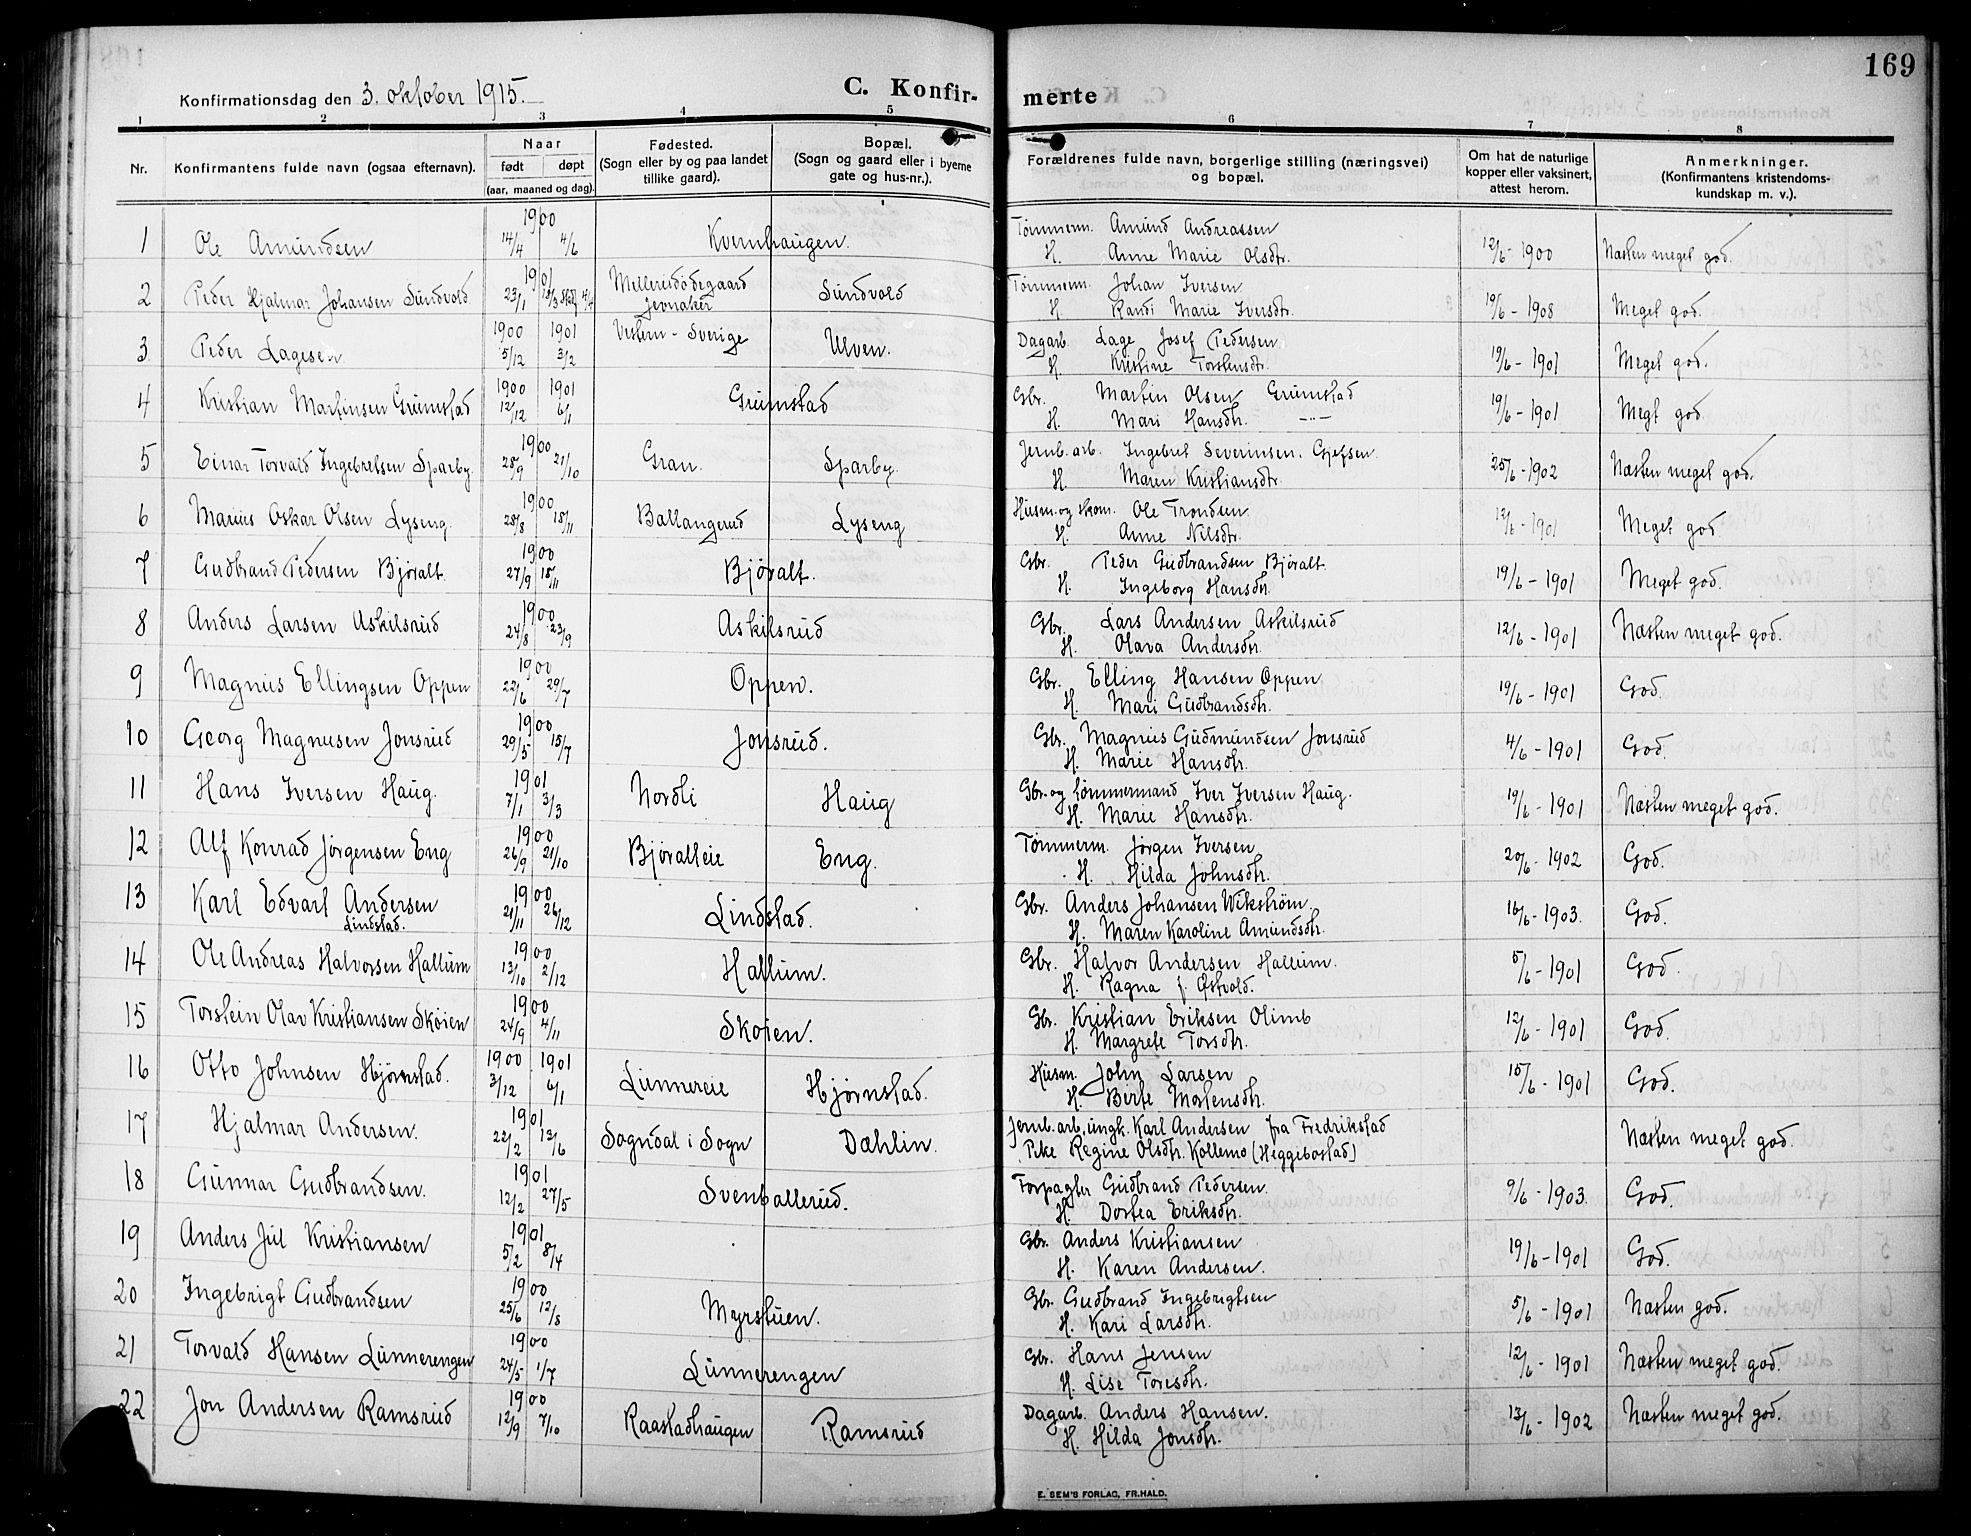 169
Konfirmationsdag den 3. oktober 1915.
C. Konfir- merte
1 2 3 4 5 6 7 8
Nr. Konfirmantens fulde navn (ogsaa efternavn). Naar født døpt (aar, maaned og dag). Fødested. (Sogn eller by og paa landet tillike gaard). Bopæl. (Sogn og gaard eller i byerne gate og hus-nr.). Forældrenes fulde navn, borgerlige stilling (næringsvei) og bopæl. Om hat de naturlige kopper eller vaksinert, attest herom. Anmerkninger. (Konfirmantens kristendoms-kundskap m. v.).
1 Ole Amundsen 1900 14/4 4/6 Kvernhaugen. Tømmerm. Amund Andreassen 12/6 - 1900 Næsten meget god.
H. Anne Marie Olsdtr.
2 Peder Hjalmar Johansen Sundvold 1901 23/1 Mellereiødegaard Jevnaker Sundvold Tømmerm. Johan Iversen 19/6 - 1908 Meget god.
H. Randi Marie Iversdtr.
3 Peder Lagesen 1900 1901 5/12 3/2 Vestern - Sverige Ulven. Dagarb. Lage Josef Pedersen 19/6 - 1901 Meget god.
H. Kristine Torstensdtr.
4 Kristian Martinsen Grumstad 1900 1901 12/12 6/1 Grumstad Gbr. Martin Olsen Grumstad 19/6 - 1901 Megt god.
H. Mari Hansdtr. -"-
5 Einar Torvald Ingebretsen Sparby. 1900 28/9 21/10 Gran. Sparby. Jernb. arb. Ingebret Severinsen. Gjefsen. 25/6 - 1902 Næsten meget god.
H. Maren Kristiansdtr.
6 Marius Oskar Olsen Lyseng. 1900 28/8 18/11 Ballangerud Lyseng Husm. og skom. Ole Trondsen 12/6 - 1901 Meget god.
H. Anne Nilsdtr.
7 Gudbrand Pedersen Bjøralt. 1900 27/9 18/11 Bjøralt. Gbr. Peder Gudbrandsen Bjøralt. 19/6 - 1901 Meget god.
H. Ingeborg Hansdtr.
8 Anders Larsen Askilsrud 1900 24/8 23/9 Askilsrud Gbr. Lars Andersen Askilsrud 12/6 - 1901 Næsten meget god.
H. Olava Andersdtr.
9 Magnus Ellingsen Oppen 1900 22/6 29/7 Oppen. Gbr. Elling Hansen Oppen 19/6 - 1901 God.
H. Mari Gudbrandsdtr.
10 Georg Magnusen Jonsrud 1900 29/5 15/7 Jonsrud. Gbr. Magnus Gudmundsen Jonsrud 4/6 - 1901 God.
H. Marie Hansdtr.
11 Hans Iversen Haug. 1901 7/1 3/3 Nordli Haug Gbr. og tømmermand Iver Iversen Haug. 19/6 - 1901 Næsten meget god.
H. Marie Hansdtr.
12 Alf Konrad Jörgensen Eng 1900 26/9 21/10 Bjøralteie Eng. Tømmerm. Jörgen Iversen 20/6 - 1902 God.
H. Hilda Johnsdtr.
13 Karl Edvart Andersen Lindstad. 1900 21/11 26/12 Lindstad. Gbr. Anders Johansen Wikstrøm. 16/6 - 1903. God.
H. Maren Karoline Amundsdtr.
14 Ole Andreas Halvorsen Hallum 1900 13/10 2/12 Hallum. Gbr. Halvor Andersen Hallum. 5/6 - 1901 God.
H. Ragna f. Østvold.
15 Torstein Olav Kristiansen Skøien 1900 24/9 4/11 Skøien. Gbr. Kristian Eriksen Olimb 12/6 - 1901 God.
H. Margrete Torsdtr.
16 Otto Johnsen Hjørnstad. 1900 1901 3/12 6/1 Lunnereie Hjørnstad. Husm. John Larsen 15/6 - 1901 God.
H. Berte Mortensdtr.
17 Hjalmar Andersen. 1901 22/2 13/6 Sogndal i Sogn Dæhlin. Jernb. arb. ungk. Karl Andersen fra Fredrikstad Næsten meget god.
Pike Regine Olsdtr. Kollemo (Heggebostad)
18 Gunnar Gudbrandsen. 1901 12/2 27/5 Svenballerud. Forpagter Gudbrand Pedersen. 9/6 - 1903. God.
H. Dortea Eriksdtr.
19 Anders Jul Kristiansen 1901 5/2 8/4 Gbr. Anders Kristiansen 19/6 - 1901 God.
H. Karen Andersen.
20 Ingebrigt Gudbrandsen 1900 25/6 12/8 Myrstuen. Gbr. Gudbrand Ingebrigtsen 5/6 - 1901 Næsten god.
H. Kari Larsdtr.
21 Torvald Hansen Lunnerengen 1900 24/5 1/7 Lunnerengen Gbr. Hans Jensen 12/6 - 1901 Næsten meget god.
H. Lise Toresdtr.
22 Jon Andersen Ramsrud 1900 12/9 7/10 Raastadhaugen Ramsrud Dagarb. Anders Hansen. 13/6 - 1902 Næsten meget god.
H. Hilda Jonsdtr.
E. SEM'S FORLAG, FR.HALD.